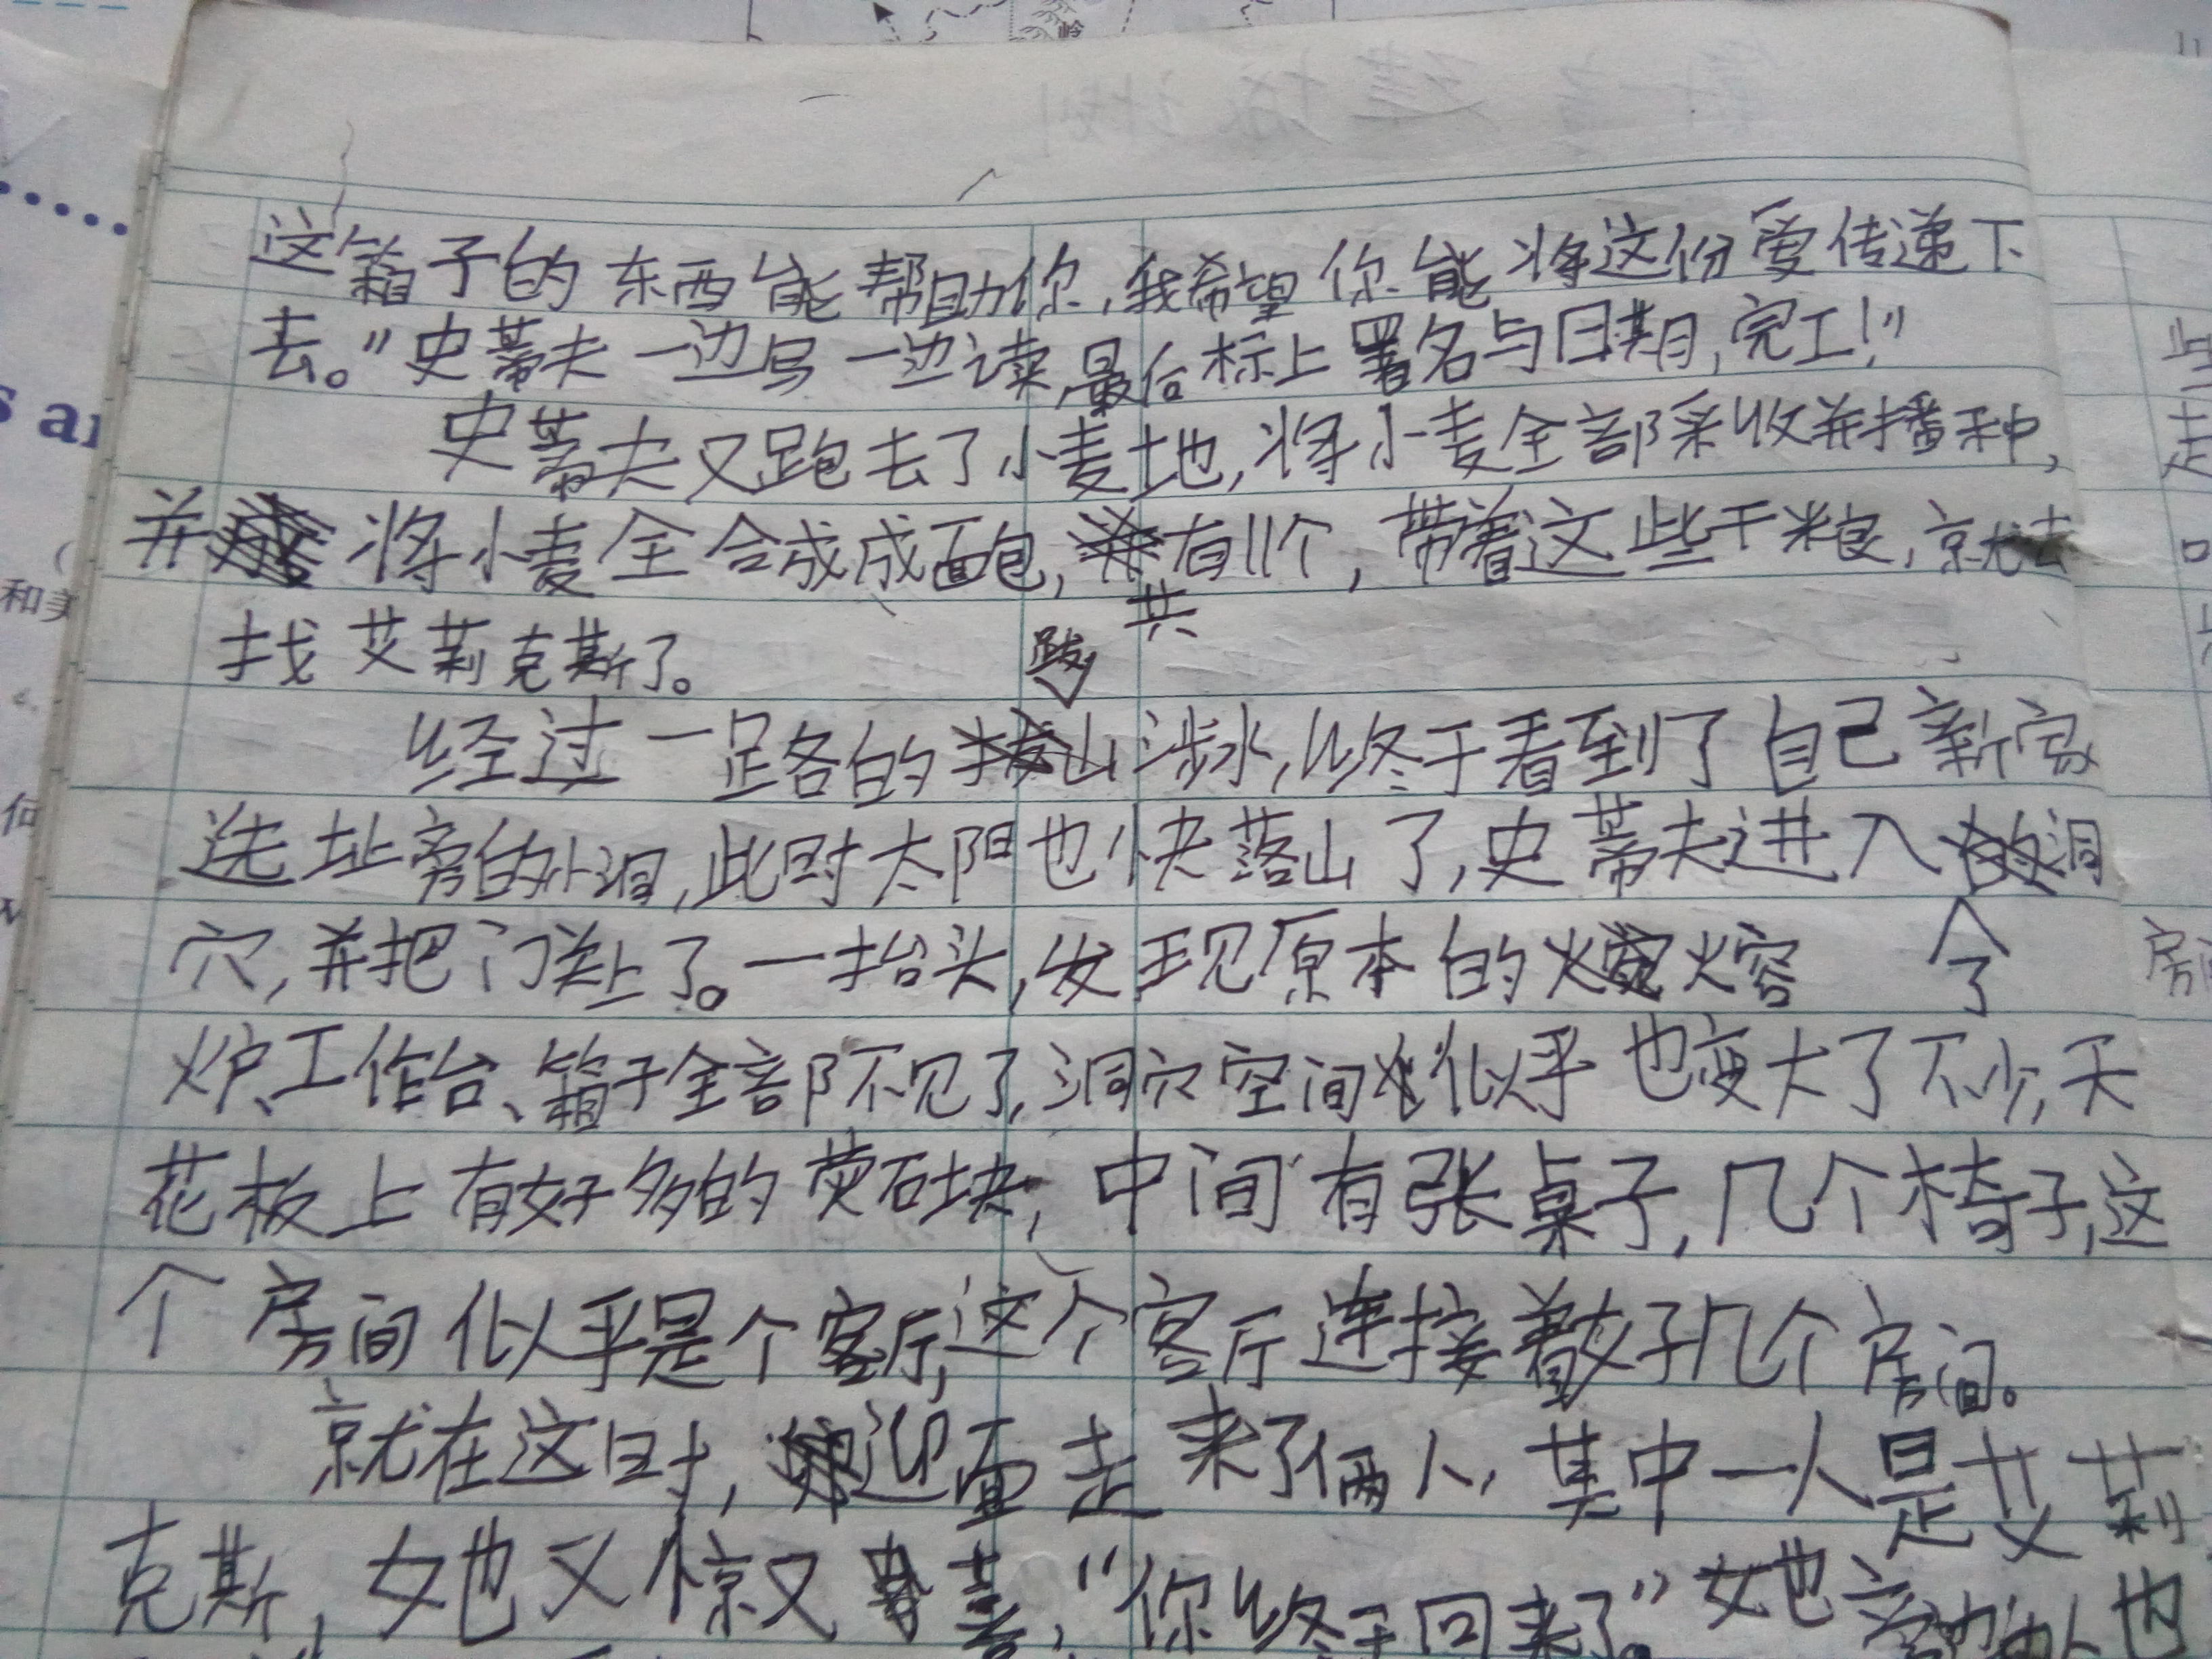 岭
11
这箱子的东西能帮助你,我希望你能将这份爱传递下
去。"史蒂夫一边写一边读,最后标上署名与日期,完工!"
史蒂夫又跑去了小麦地,将小麦全部采收并播种,
并将小麦全合成成面包,共有11个,带着这些干粮,就去
找艾莉克斯了。
经过一路的跋山涉水,终于看到了自己新家
选址旁的小洞,此时太阳也快落山了,史蒂夫进入了洞
穴,并把门关上了。一抬头,发现原本的熔
炉、工作台、箱子全部不见了,洞穴空间似乎也变大了不少,天
花板上有好多的荧石块,中间有张桌子,几个椅子,这
个房间似乎是个客厅,这个客厅连接着好几个房间。
就在这时,迎面走来了俩人,其中一人是艾莉
克斯,她又惊又喜,"你终于回来了。"她旁边的人也
s an
和美